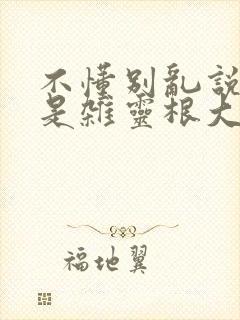 不懂别亂説
是雜靈根大
福地翼